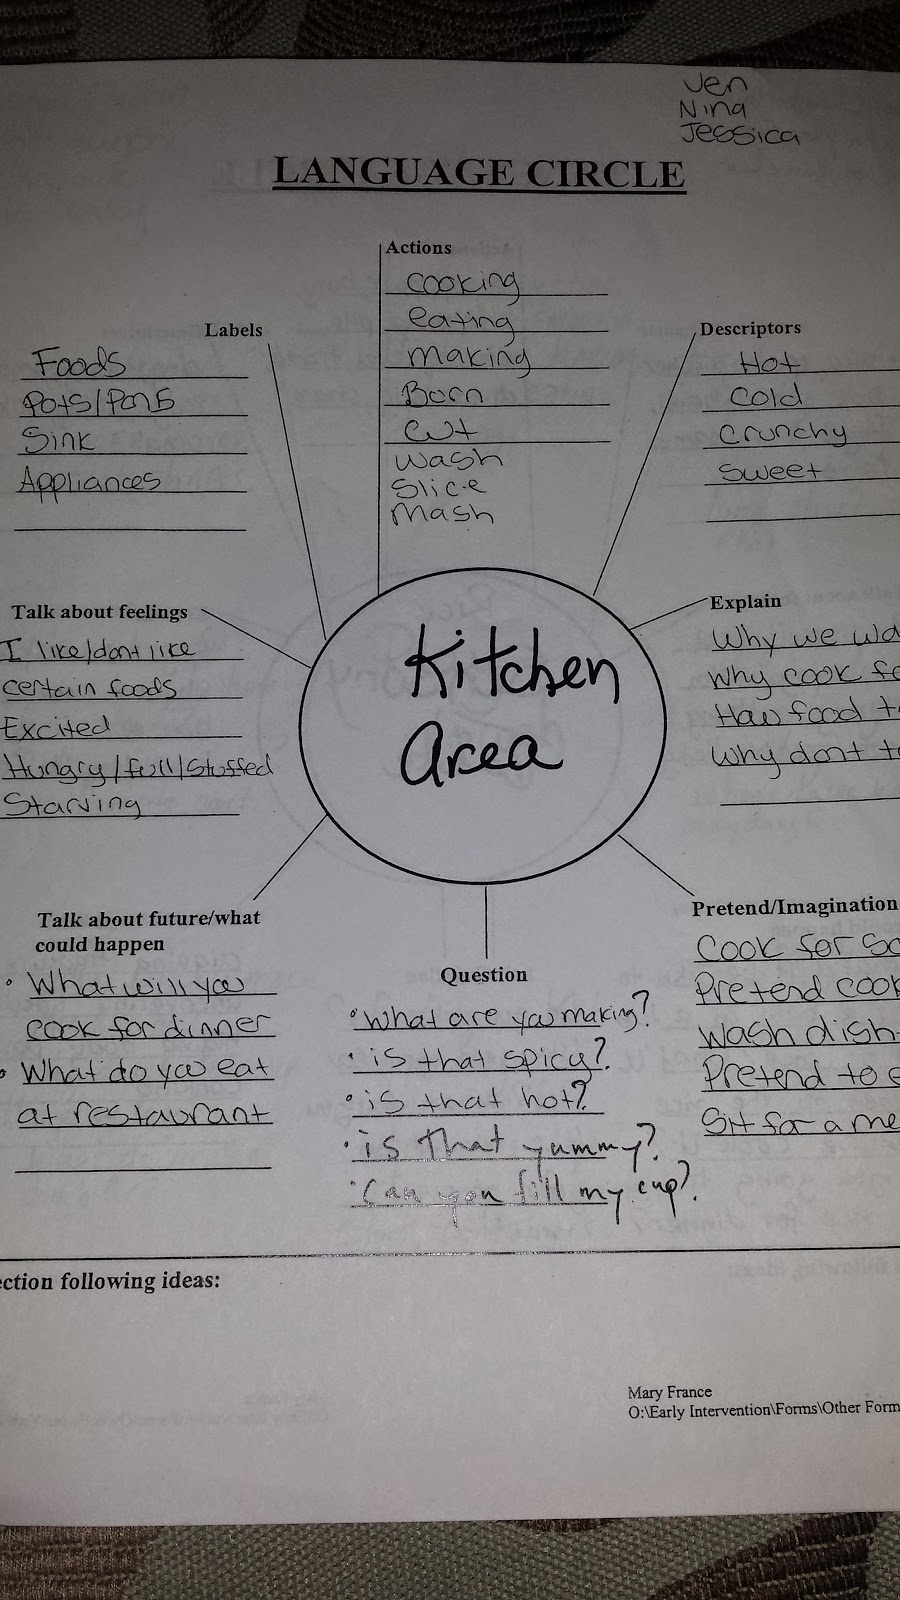 Jen
Nina
Jessica
LANGUAGE CIRCLE
Actions
cooking
eating
making
Born
cut
wash
Slice
mash
Labels
Foods
Pots/Pans
Sink
Appliances
Descriptors
Hot
Cold
Crunchy
Sweet
Talk about feelings
I like/dont like
certain foods
Excited
Hungry/full/Stuffed
Starving
Kitchen
Area
Explain
Why we
Why cook
How food
Why dont
Talk about future/what
could happen
• What will you
cook for dinner
• What do you eat
at restaurant
Question
• What are you making?
• is that spicy?
• is that hot?
• is that yummy?
• Can you fill my cup?
Pretend/Imagination
Cook for
Pretend cook
Wash dish
Pretend to
Sit for a
ection following ideas:
Mary France
O:\Early Intervention\Forms\Other Form